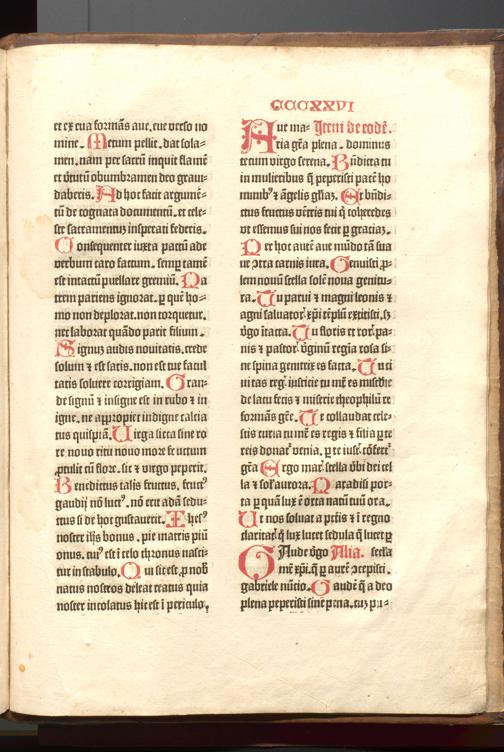 CCCXXVI
et ex eua formās aue. eue verso no
mine. Metum pellit. dat sola-
men. nam per sacrū inquit flamē
et v̓tutū obumbramen deo graui-
daberis. Ad hoc facit argumē-
tū de cognata documentū. et cele-
ste sacramentū insperati federis.
Consequenter iuxta pactū ade
verbum caro factum. semp̱ tamē
est intactū puellare gremiū. Pa
trem pariens ignorat. ꝑ quē ho-
mo non deplorat. non torquetur.
nec laborat quādo parit filium.
Signū audis nouitatis. crede
solum ⁊ est satis. non est tue facul
tatis soluere corrigiam. Gran-
de signū ⁊ insigne est in rubo ⁊ in
igne. ne appropiet indigne calcia
tus quispiā. Virga sicca sine ro
re nouo ritu nouo more ⁊ fructum
ꝓtulit cū flore. sic ⁊ virgo peperit.
Benedictus talis fructus. fruct᷒
gaudij nō luct᷒. nō erit adā sedu-
ctus si de hoc gustauerit. Ihes᷒
noster ih̄s bonus. pie matris piū
onus. cui᷒ est ī celo thronus nasci-
tur in stabulo. Qui sic est ꝓ nob̄
natus nostros deleat reatus quia
noster incolatus hic est ī periculo.
Aue ma- Item de eodē.
ria gr̄a plena. dominus
tecum virgo serena. Bn̄dicta tu
in mulieribus q̄ peperisti pacē ho
minib᷒ ⁊ āgelis gl̄iaꝫ. Et bn̄di-
ctus fructus vētris tui q̇ coheredes
vt essemus sui nos fecit ꝑ gratiaꝫ.
Per hoc autē aue mūdo tā sua
ue ɔtra carnis iura. Genuisti ꝓ-
lem nouū stella solē noua genitu-
ra. Tu parui ⁊ magni leonis ⁊
agni saluatorꝭ xp̄i tēplū extitisti. sꝫ
v̓go ītacta. Tu floris et rorꝭ pa-
nis ⁊ pastorꝭ v̓ginū regīa rosa si-
ne spina genitrix es facta. Tu ci
uitas regꝭ iusticie tu mr̄ es mīsc̄die
de lacu fecis ⁊ miserie theophilū re
formās gr̄e. Te collaudat cele-
stis curia tu mr̄ es regis ⁊ filia ꝑ te
reis donat᷑ venia. ꝑ te iustꝭ cōfert᷑
gr̄a Ergo marꝭ stella v̓bi dei cel
la ⁊ solꝭ aurora. Paradisi por-
ta ꝑ quā lux ē orta natū tuū ora.
Vt nos soluat a pctīs ⁊ ī regno
claritatꝭ q̇ lux lucet sedula q̇ lucet ꝑ
Gaude v̓go Alia. stella
mē xp̄i. q̄ ꝑ aurē ɔcepisti.
gabriele nūcio. Gaude q̄ a deo
plena peperisti sine pena. cuꝫ pu-